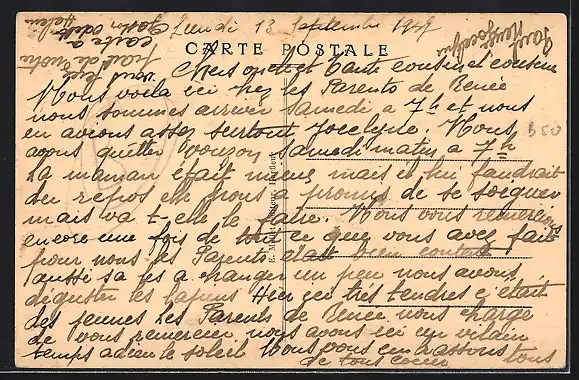 Lundi 13 Septembre 1949
CARTE POSTALE
Chers oncle et tante cousin et cousine
Nous voila ici chez les Parents de Renée
nous sommes arriver samedi a 7h et nous
en avions assez surtout Jocelyne. Nous
avons quitter Vouzon Samedi matin a 7h
La maman était mieux mais il lui faudrait
du repos elle nous a promis de se soigner
mais va t-elle le faire. Nous vous remercions
encore une fois de tout ce que vous avez fait
pour nous les Parents d'ici bien content
aussi sa les a changer un peu nous avons
déguster les lapins Hier ici très tendres c'était
des jeunes les Parents de Renée nous charge
de vous remercier nous avons ici un vilain
temps adieu le soleil Nous vous embrassons
de tout coeur tous
B50
carte a
Gaston Odette